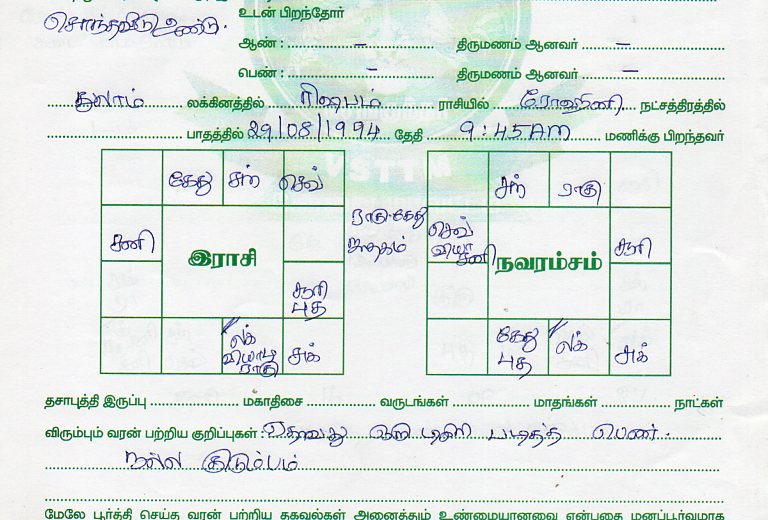 உடன் பிறந்தோர்
சொந்தவீடு உண்டு.
ஆண் : – திருமணம் ஆனவர் –
பெண் : – திருமணம் ஆனவர் –
துலாம் லக்கினத்தில் ரிஷபம் ராசியில் ரோஹிணி நட்சத்திரத்தில்
பாதத்தில் 29/08/1994 தேதி 9:45AM மணிக்கு பிறந்தவர்
கேது சந் செவ் சந் ராகு
சனி ராகு-கேது செவ் சூரி
ஜாதகம் வியா
இராசி சனி நவரம்சம்
சூரி
புத
லக் சுக் கேது லக் சுக்
வியாழ புத
ராகு
தசாபுத்தி இருப்பு மகாதிசை வருடங்கள் மாதங்கள் நாட்கள்
விரும்பும் வரன் பற்றிய குறிப்புகள் : ஏதாவது ஒரு டிகிரி படித்த பெண்.
நல்ல குடும்பம்
மேலே பூர்த்தி செய்த வரன் பற்றிய தகவல்கள் அனைத்தும் உண்மையானவை என்பதை மனப்பூர்வமாக